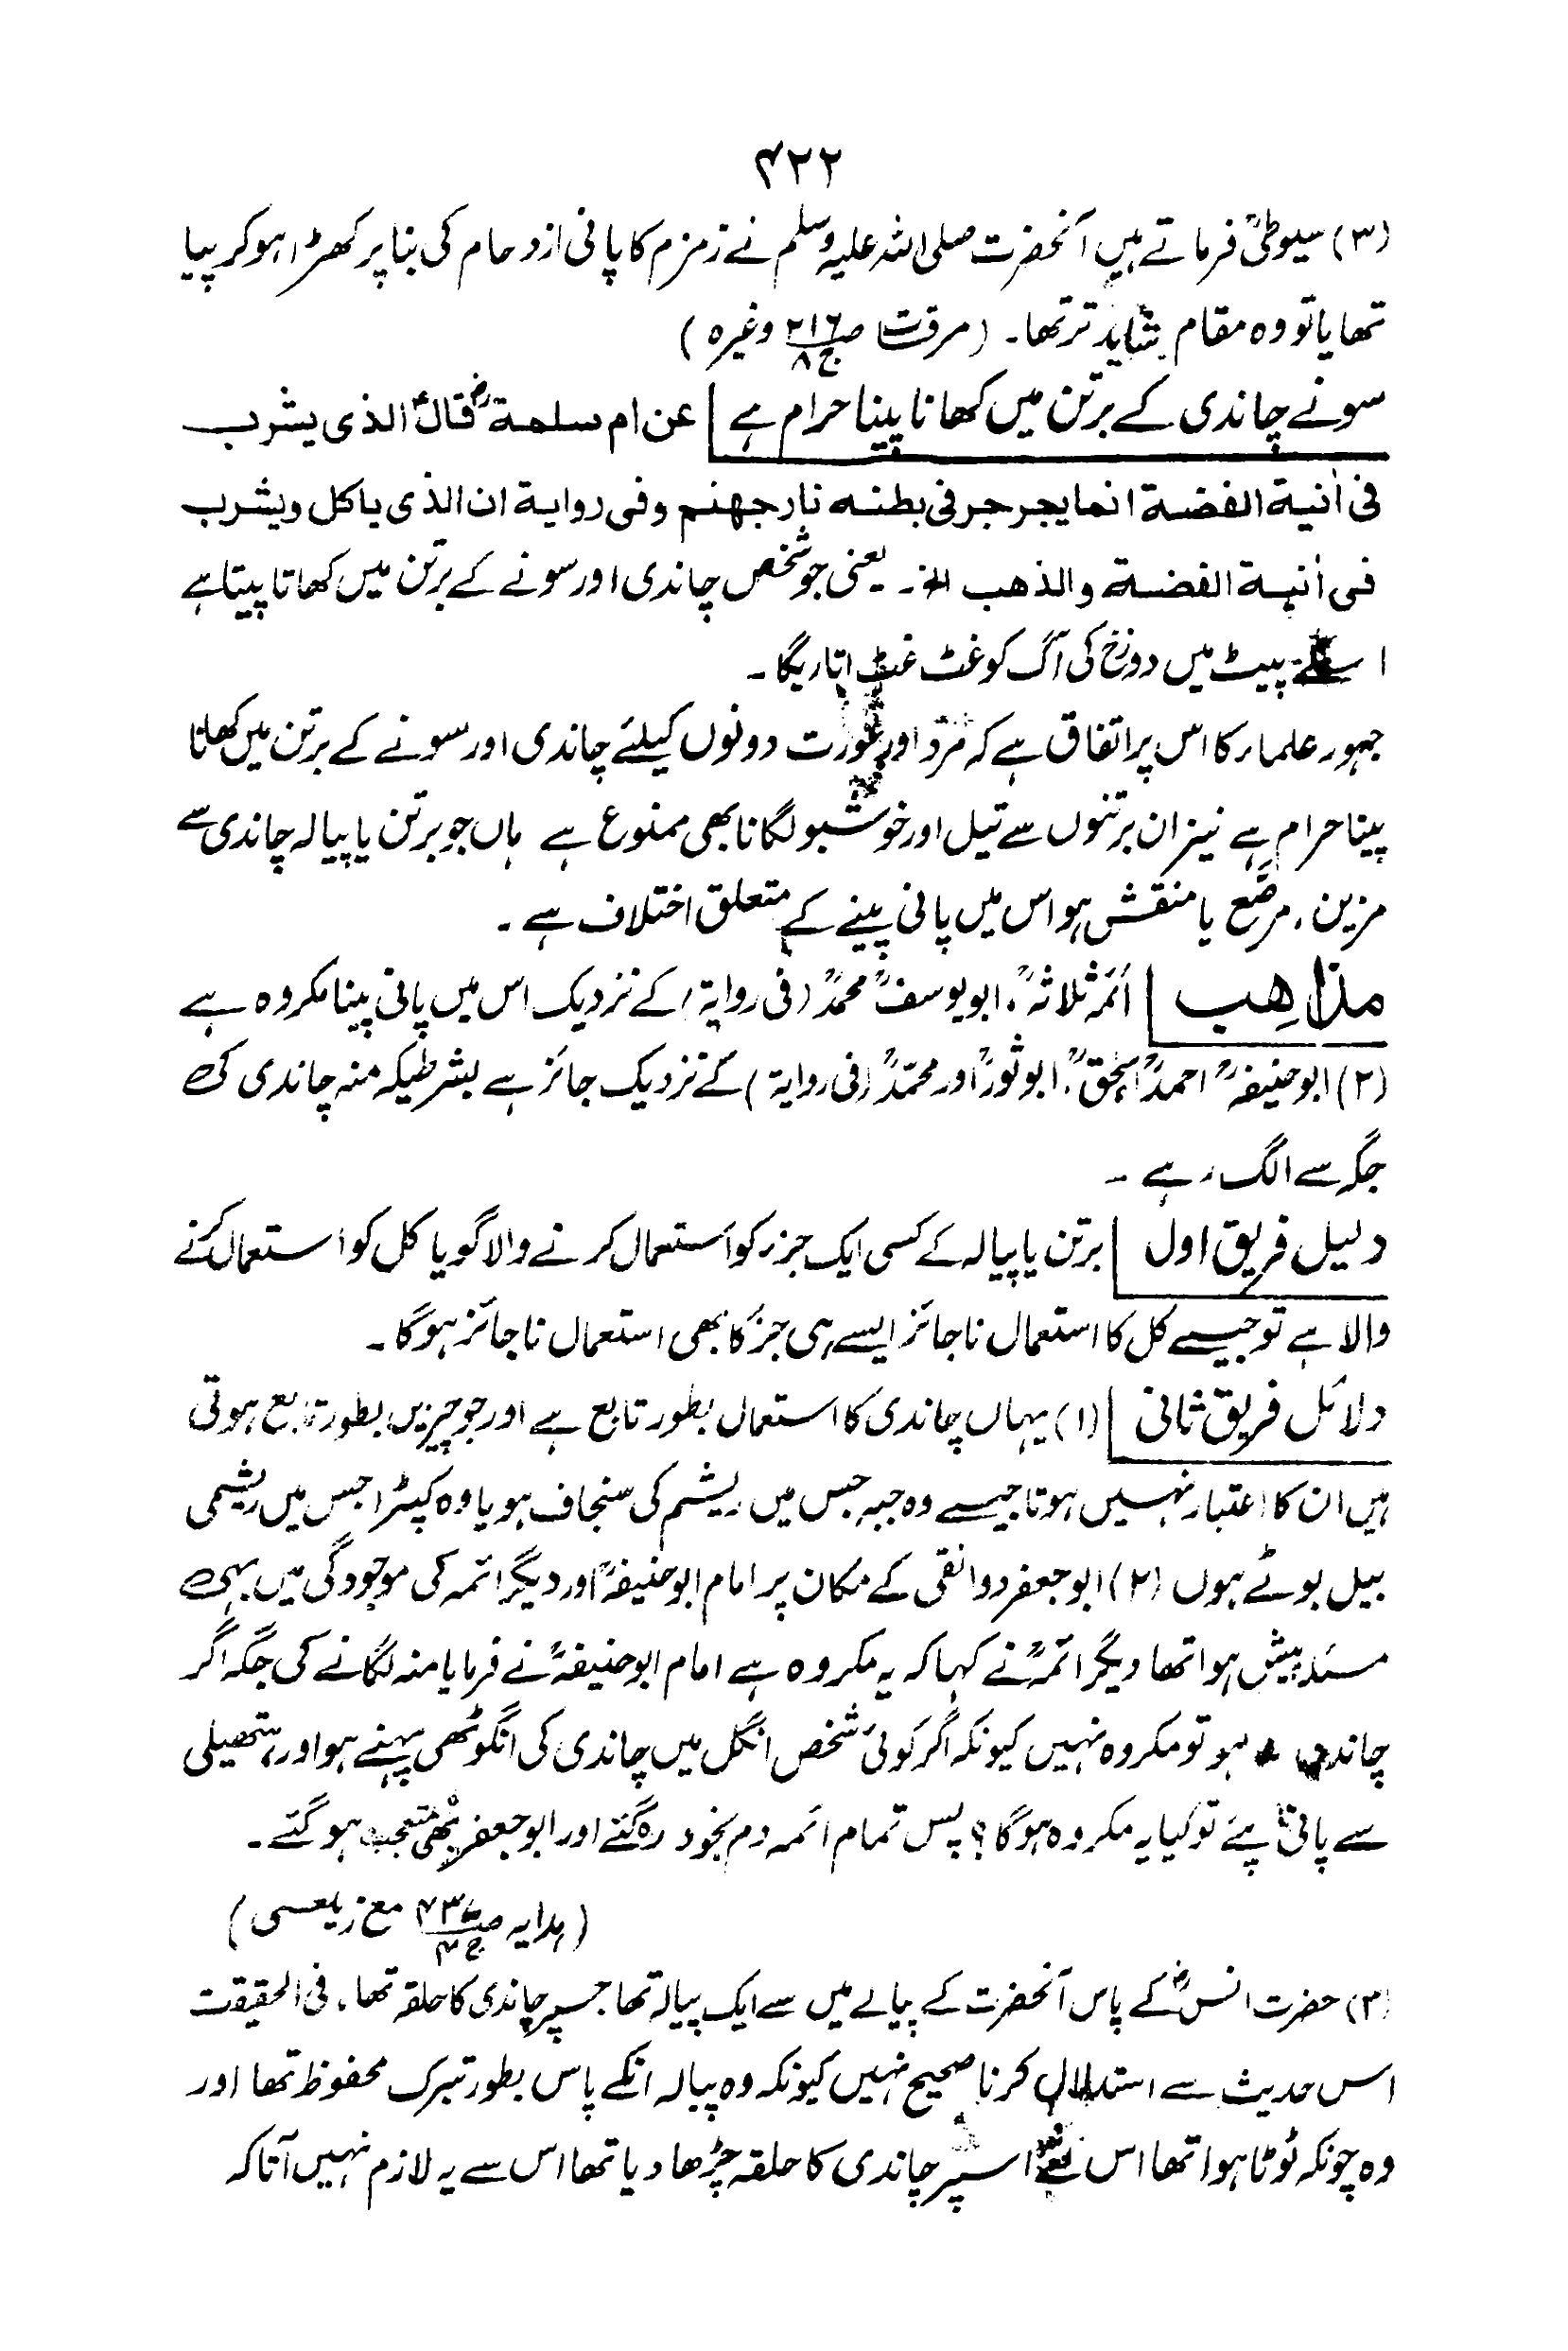 ۴۲۲
(۳) سیوطیؒ فرماتے ہیں آنحضرت صلی اللہ علیہ وسلم نے زمزم کا پانی ازدحام کی بنا پر کھڑا ہو کر پیا
تھا یا تو وہ مقام شاید تر تھا۔ (مرقت ص۲۱۶ ج۸ وغیرہ)
سونے چاندی کے برتن میں کھانا پینا حرام ہے | عن ام سلمةؓ قالؑ الذی یشرب
فی اٰنیة الفضة انما یجرجر فی بطنه نار جهنم وفی روایة ان الذی یاکل ویشرب
فی اٰنیة الفضة والذهب الخ۔ یعنی جو شخص چاندی اور سونے کے برتن میں کھاتا پیتا ہے
پیٹ میں دوزخ کی آگ کو غٹ غٹ اتاریگا۔
جمہور علماء کا اس پر اتفاق ہے کہ مرد اور عورت دونوں کیلئے چاندی اور سونے کے برتن میں کھانا
پینا حرام ہے نیز ان برتنوں سے تیل اور خوشبو لگانا بھی ممنوع ہے ہاں جو برتن یا پیالہ چاندی سے
مزین، مرصّع یا منقش ہو اس میں پانی پینے کے متعلق اختلاف ہے۔
مذاہِب | ائمہ ثلاثہؒ، ابو یوسفؒ محمدؒ (فی روایة) کے نزدیک اس میں پانی پینا مکروہ ہے
(۲) ابو حنیفہؒ احمدؒ اسحٰقؒ، ابو ثورؒ اور محمدؒ (فی روایة) کے نزدیک جائز ہے بشرطیکہ منہ چاندی کی
جگہ سے الگ رہے۔
دلیل فریق اول | برتن یا پیالہ کے کسی ایک جزء کو استعمال کرنے والا گویا کل کو استعمال کرنے
والا ہے تو جیسے کل کا استعمال ناجائز ایسے ہی جز کا بھی استعمال ناجائز ہوگا۔
دلائل فریق ثانی | (۱) یہاں چاندی کا استعمال بطور تابع ہے اور جو چیزیں بطور تابع ہوتی
ہیں ان کا اعتبار نہیں ہوتا جیسے وہ جبہ جس میں ریشم کی سنجاف ہو یا وہ کپڑا جس میں ریشمی
بیل بوٹے ہوں (۲) ابو جعفر دوانقی کے مکان پر امام ابو حنیفہؒ اور دیگر ائمہ کی موجودگی میں یہی
مسئلہ پیش ہوا تھا دیگر ائمہؒ نے کہا کہ یہ مکروہ ہے امام ابو حنیفہؒ نے فرمایا منہ لگانے کی جگہ اگر
چاندی ہو تو مکروہ نہیں کیونکہ اگر کوئی شخص انگل میں چاندی کی انگوٹھی پہنے ہو اور ہتھیلی
سے پانی پئے تو کیا یہ مکروہ ہوگا؟ پس تمام ائمہ دم بخود رہ گئے اور ابو جعفر بھی متعجب ہو گئے۔
(ہدایہ ص۴۳۷ ج۴ مع زیلعی)
(۳) حضرت انسؓ کے پاس آنحضرت کے پیالے میں سے ایک پیالہ تھا جسپر چاندی کا حلقہ تھا، فی الحقیقت
اس حدیث سے استدلال کرنا صحیح نہیں کیونکہ وہ پیالہ انکے پاس بطور تبرک محفوظ تھا اور
وہ چونکہ ٹوٹا ہوا تھا اس اسپر چاندی کا حلقہ چڑھا دیا تھا اس سے یہ لازم نہیں آتا کہ